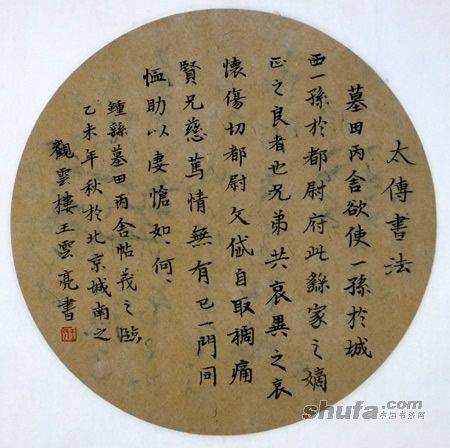 太傅書法
墓田丙舍欲使一孫於城
西一孫於都尉府此繇家之嫡
正之良者也兄弟共哀異之哀
懷傷切都尉文岱自取禍痛
賢兄慈篤情無有已一門同
恤助以凄愴如何、
鍾繇墓田丙舍帖羲之臨
乙未年秋於北京城南之
觀雲樓王雲亮書
shufa.com